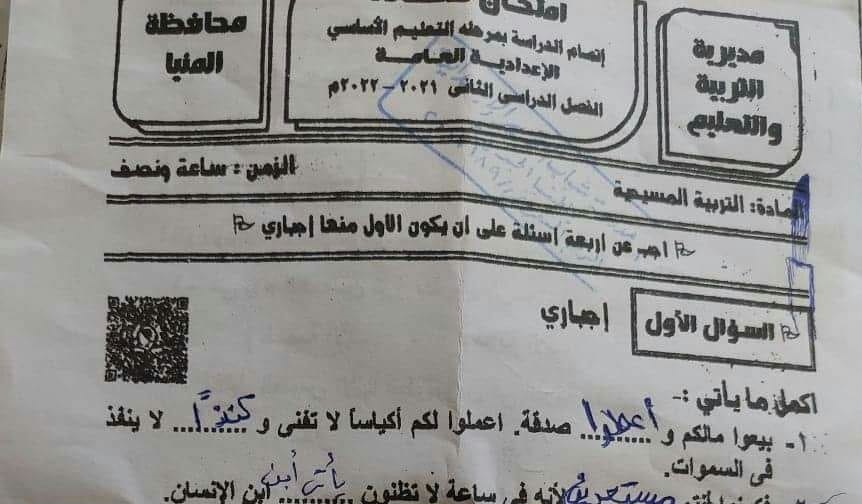 محافظة
المنيا
إتمام الدراسة بمرحلة التعليم الأساسي
الإعدادية العامة
الفصل الدراسى الثانى ٢٠٢١-٢٠٢٢م
مديرية
التربية
والتعليم
المادة: التربية المسيحية
الزمن: ساعة ونصف
اجب عن اربعة اسئلة على ان يكون الاول منها إجباري
السؤال الأول
إجباري
اكمل ما يأتي :-
١- بيعوا مالكم و أعطوا صدقة. اعملوا لكم أكياساً لا تفنى و كنزًا لا ينفذ
فى السموات.
مستعدين لأنه فى ساعة لا تظنون يأتى ابن الإنسان.